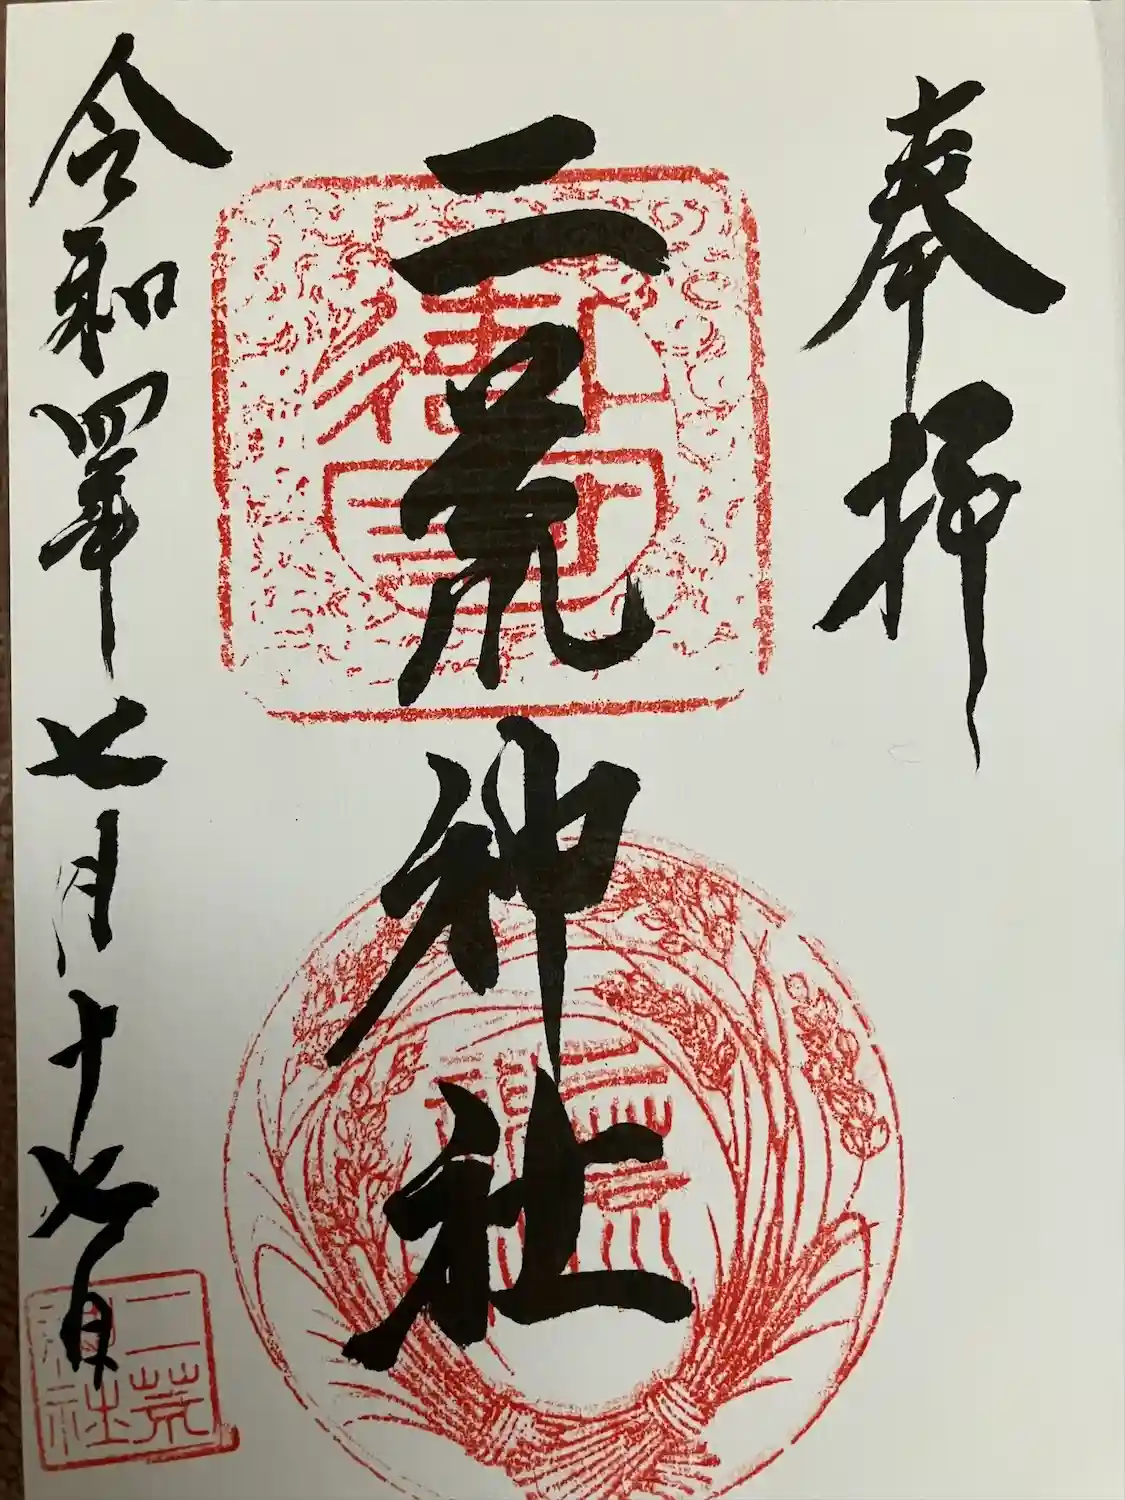 奉拝
二荒神社
令和四年七月十七日
二荒
神社